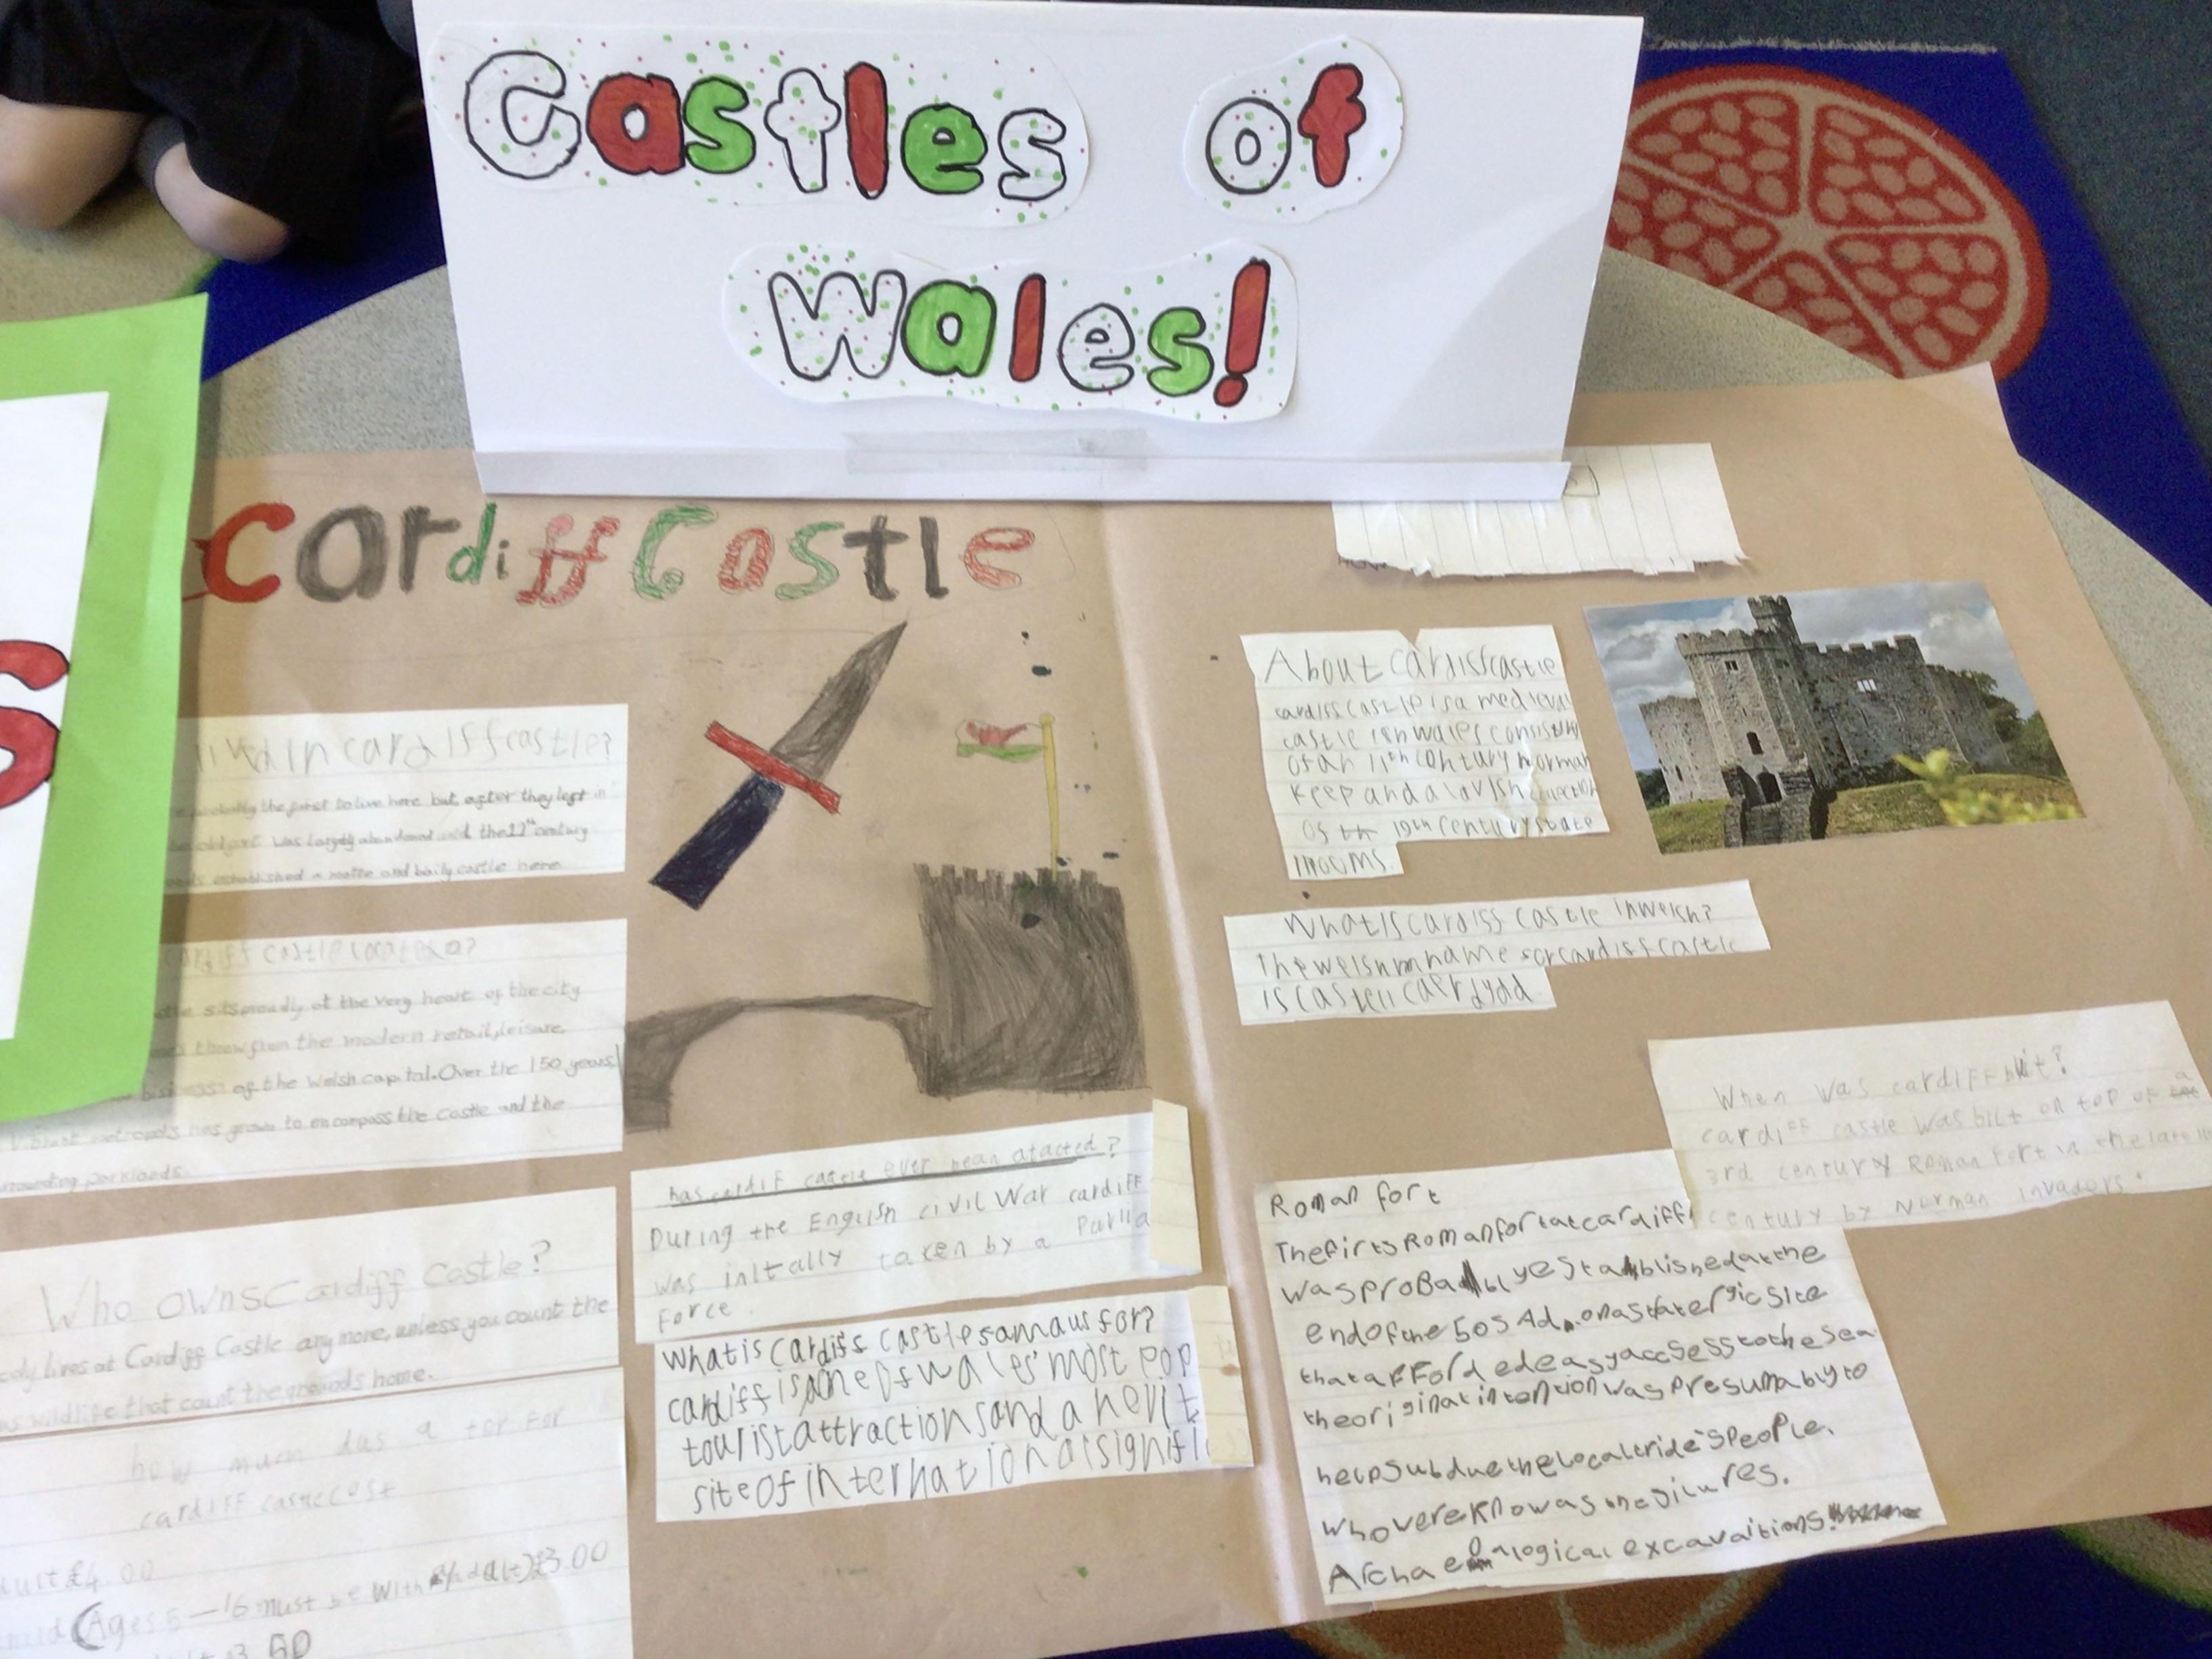 Castles of
Wales!
Cardiff Castle
lived in cardiff castle?
probably the first to live here but, after they left in
was largely abandoned until the 11th century
established a motte and baily castle here
cardiff castle located?
sits proudly at the very heart of the city
throw from the modern retail, leisure,
business of the Welsh capital. Over the 150 years,
vibrant metropolis has grown to encompass the castle and the
surrounding parklands.
Who owns Cardiff Castle?
body lives at Cardiff Castle any more, unless you count the
wildlife that count the grounds home.
how much das a tor for
cardiff castle cost
£4.00
(Ages 5-16 must be with an adult) £3.00
3.50
has cardif castle ever bean atacted?
During the English civil War cardiff
was initally taken by a Parlia
force.
What is cardiff castle famaus for?
cardiff is one of wales' most pop
tourist attractions and a herit
site of international signifi
About cardiff castle
cardiff castle is a medieval
castle in wales consisting
of an 11th century norman
keep and a lavish collection
of th 19th century state
rooms.
What is cardiff castle in welsh?
The welsh name for cardiff castle
is castell caerdydd
When was cardiff bilt?
cardiff castle was bilt on top of a
3rd century Roman fort in the late 11
century by Norman invaders.
Roman fort
The firts Roman fort at cardiff
was probably establised at the
end of the 50s Ad, on a statergic site
that afforded easy accsess to the sea
the original intention was presumably to
help subdue the local tride's people.
who vere know as the silures.
Archaeological excavaitions